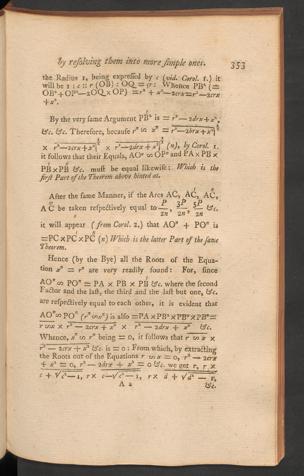 by resolving them into more simple ones. 353
the Radius 1, being expressed by c (vid. Corol. 1.) it
will be 1 : c :: r (OB) : OQ = cr: Whence PB² (=
OB² + OP² — 2OQ × OP) = r² + x² — 2crx = r² — 2crx
+ x².
By the very same Argument PB² is = r² — 2drx + x²,
&c. &c. Therefore, because rⁿ ∽ xⁿ =
(n), by Corol. 1.
it follows that their Equals, AOⁿ ∽ OPⁿ and PA × PB ×
PB × PB &c. must be equal likewise: Which is the
first Part of the Theorem above hinted at.
After the same Manner, if the Arcs AC, AC, AC,
AC be taken respectively equal to P/2n, 3P/2n, 5P/2n &c.
it will appear (from Corol. 2.) that AOⁿ + POⁿ is
= PC × PC × PC (n) Which is the latter Part of the same
Theorem.
Hence (by the Bye) all the Roots of the Equa-
tion xⁿ = rⁿ are very readily found: For, since
AOⁿ ∽ POⁿ = PA × PB × PB &c. where the second
Factor and the last, the third and the last but one, &c.
are respectively equal to each other, it is evident that
AOⁿ ∽ POⁿ (rⁿ ∽ xⁿ) is also = PA × PB² × PB² × PB² =
r ∽ x × r² — 2crx + x² × r² — 2drx + x² &c.
Whence, xⁿ ∽ rⁿ being = 0, it follows that r ∽ x ×
r² — 2crx + x² &c. is = 0: From which, by extracting
the Roots out of the Equations r ∽ x = 0, r² — 2crx
+ x² = 0, r² — 2drx + x² = 0 &c. we get r, r ×
c + √c² — 1, r × c — √c² — 1, r × d + √d² — 1,
A a &c.